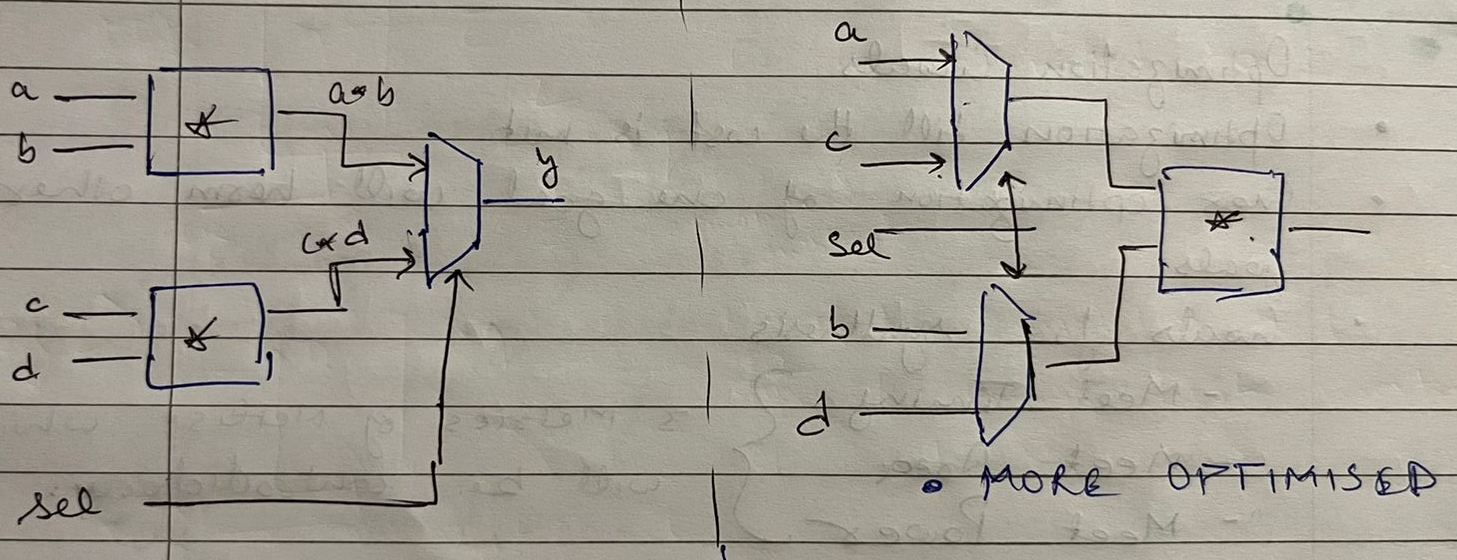 a
b
*
a*b
y
c*d
c
d
*
sel
a
c
Sel
b
d
*
• MORE OPTIMISED